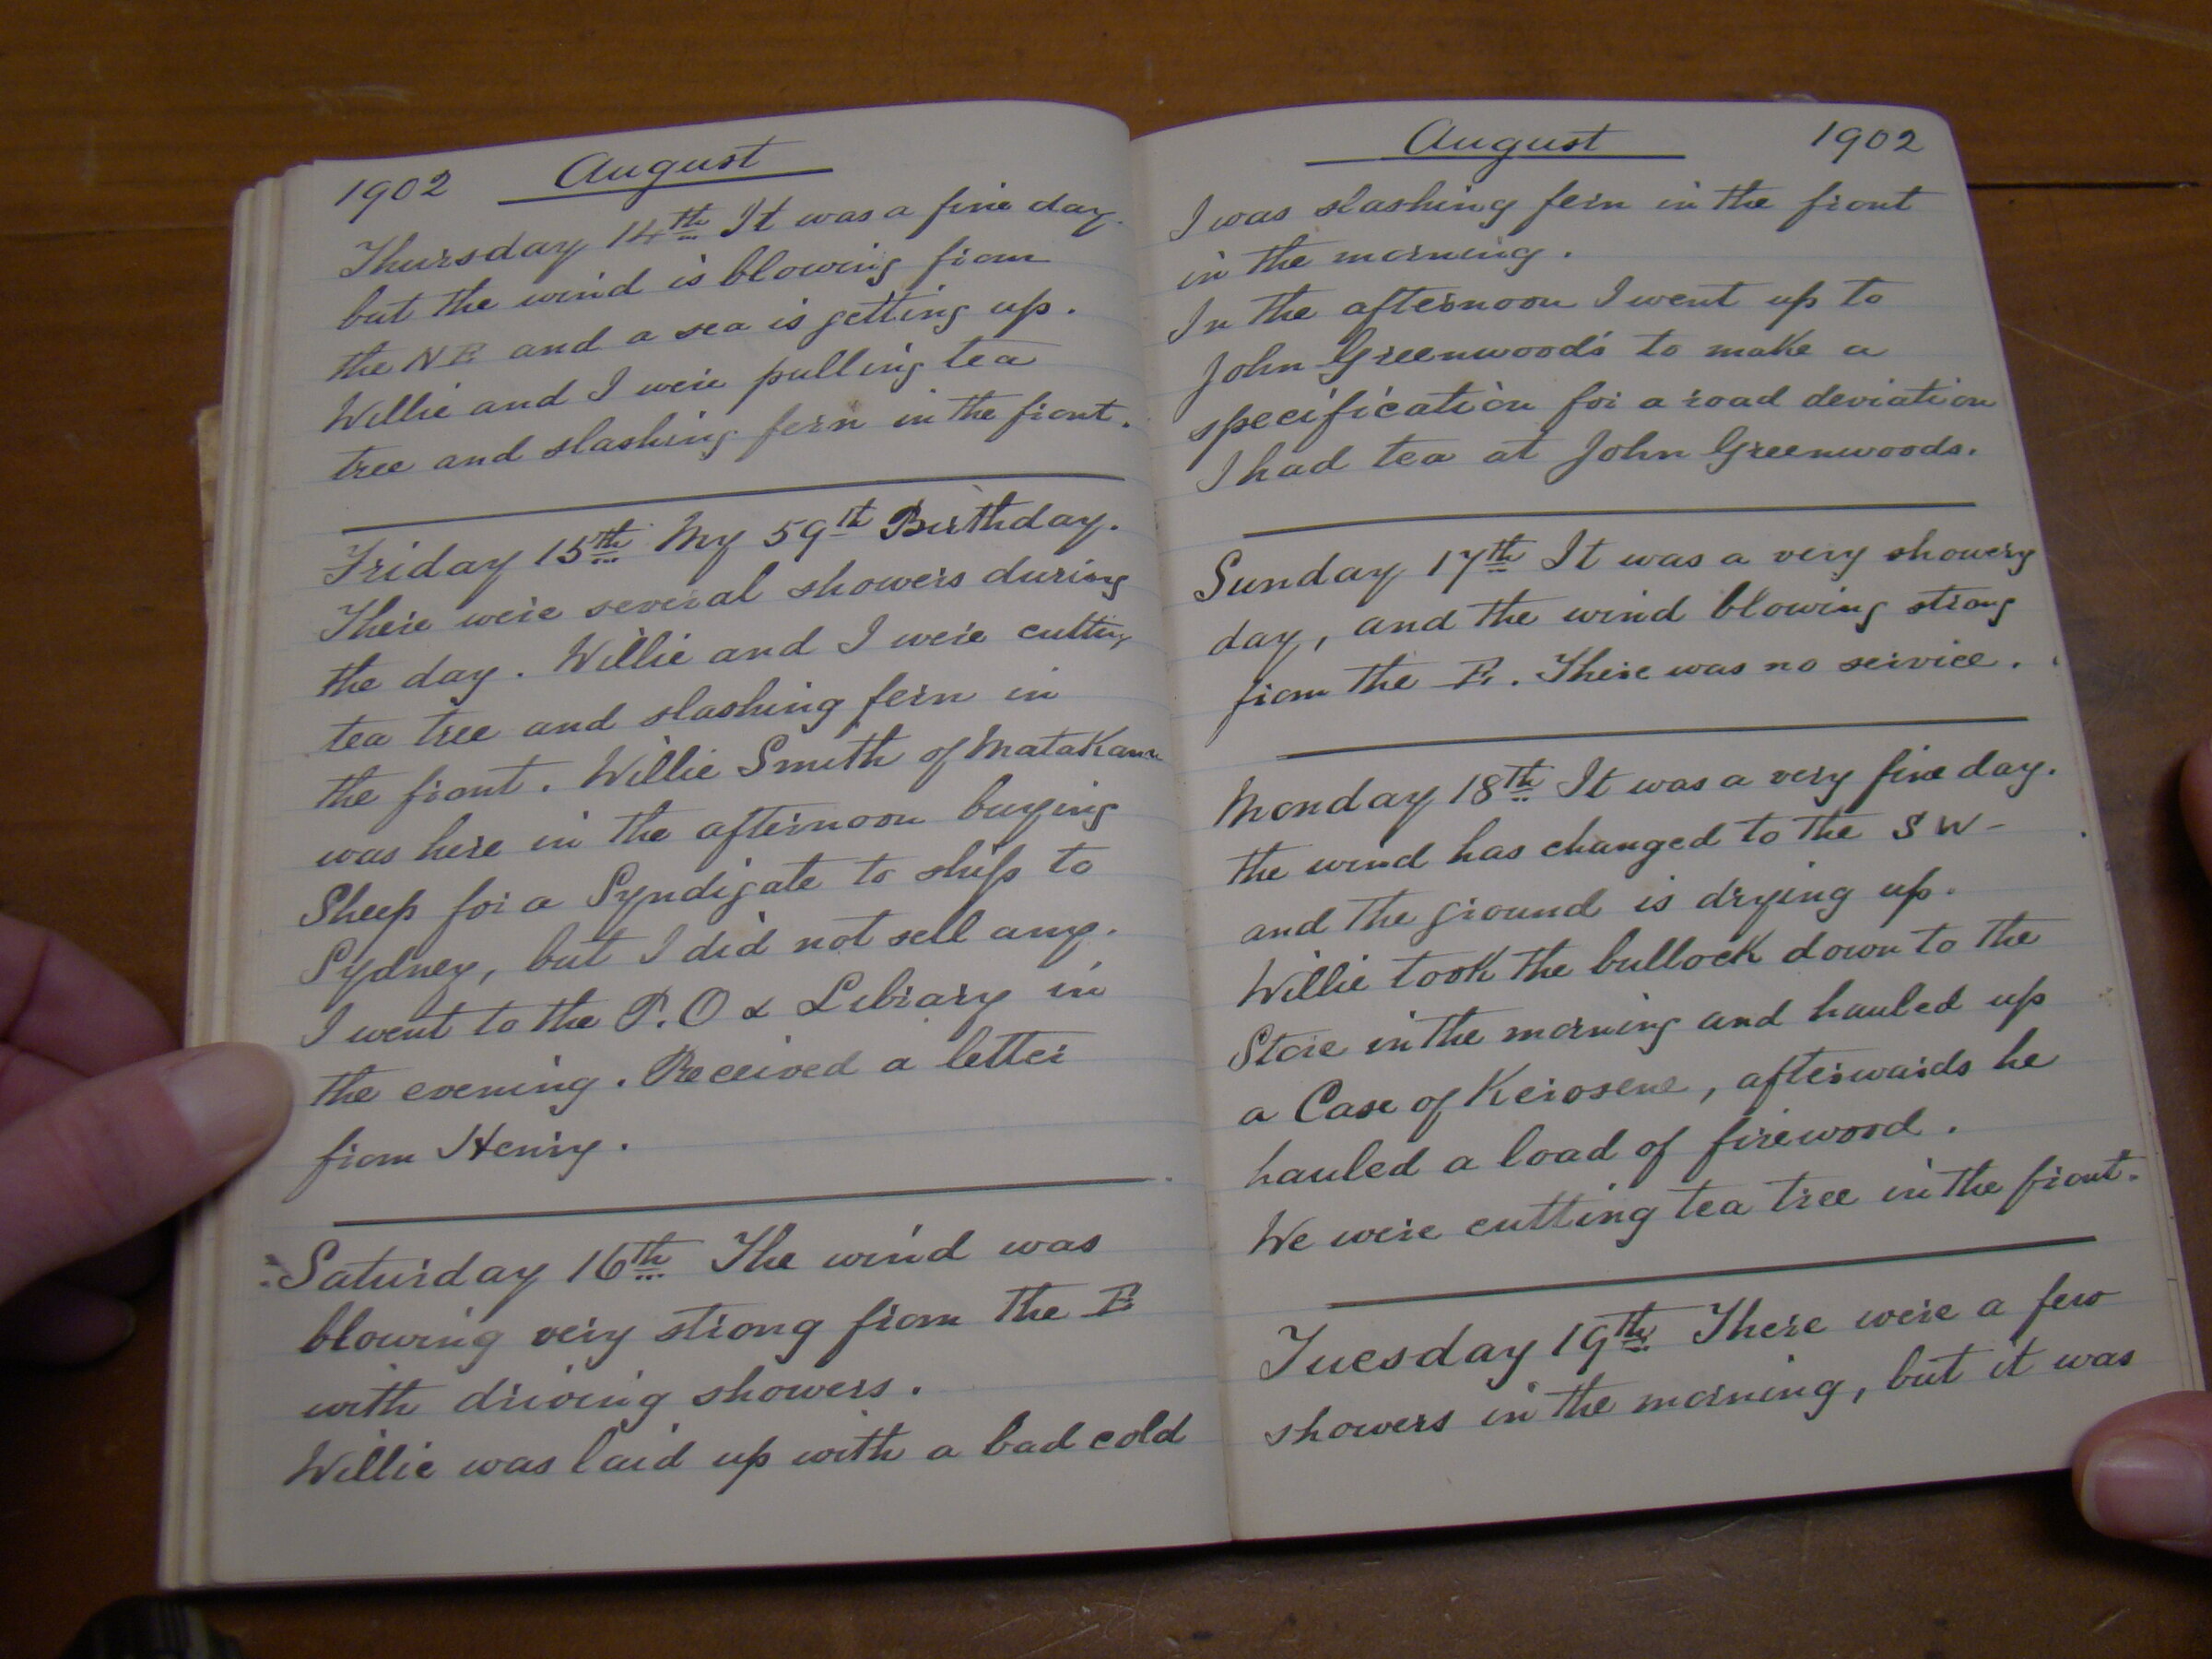 1902 August
Thursday 14th It was a fine day
but the wind is blowing from
the N E and a sea is getting up.
Willie and I were pulling tea
tree and slashing fern in the front.
Friday 15th My 59th Birthday.
There were several showers during
the day. Willie and I were cutting
tea tree and slashing fern in
the front. Willie Smith of Matakana
was here in the afternoon buying
Sheep for a Syndigate to ship to
Sydney, but I did not sell any.
I went to the P.O & Library in
the evening. Received a letter
from Henry.
Saturday 16th The wind was
blowing very strong from the E
with driving showers.
Willie was laid up with a bad cold
August 1902
I was slashing fern in the front
in the morning.
In the afternoon I went up to
John Greenwood's to make a
specification for a road deviation
I had tea at John Greenwoods.
Sunday 17th It was a very showery
day, and the wind blowing strong
from the E. There was no service.
Monday 18th It was a very fine day.
the wind has changed to the S W-
and the ground is drying up.
Willie took the bullock down to the
Store in the morning and hauled up
a Case of Kerosene, afterwards he
hauled a load of firewood.
We were cutting tea tree in the front.
Tuesday 19th There were a few
showers in the morning, but it was